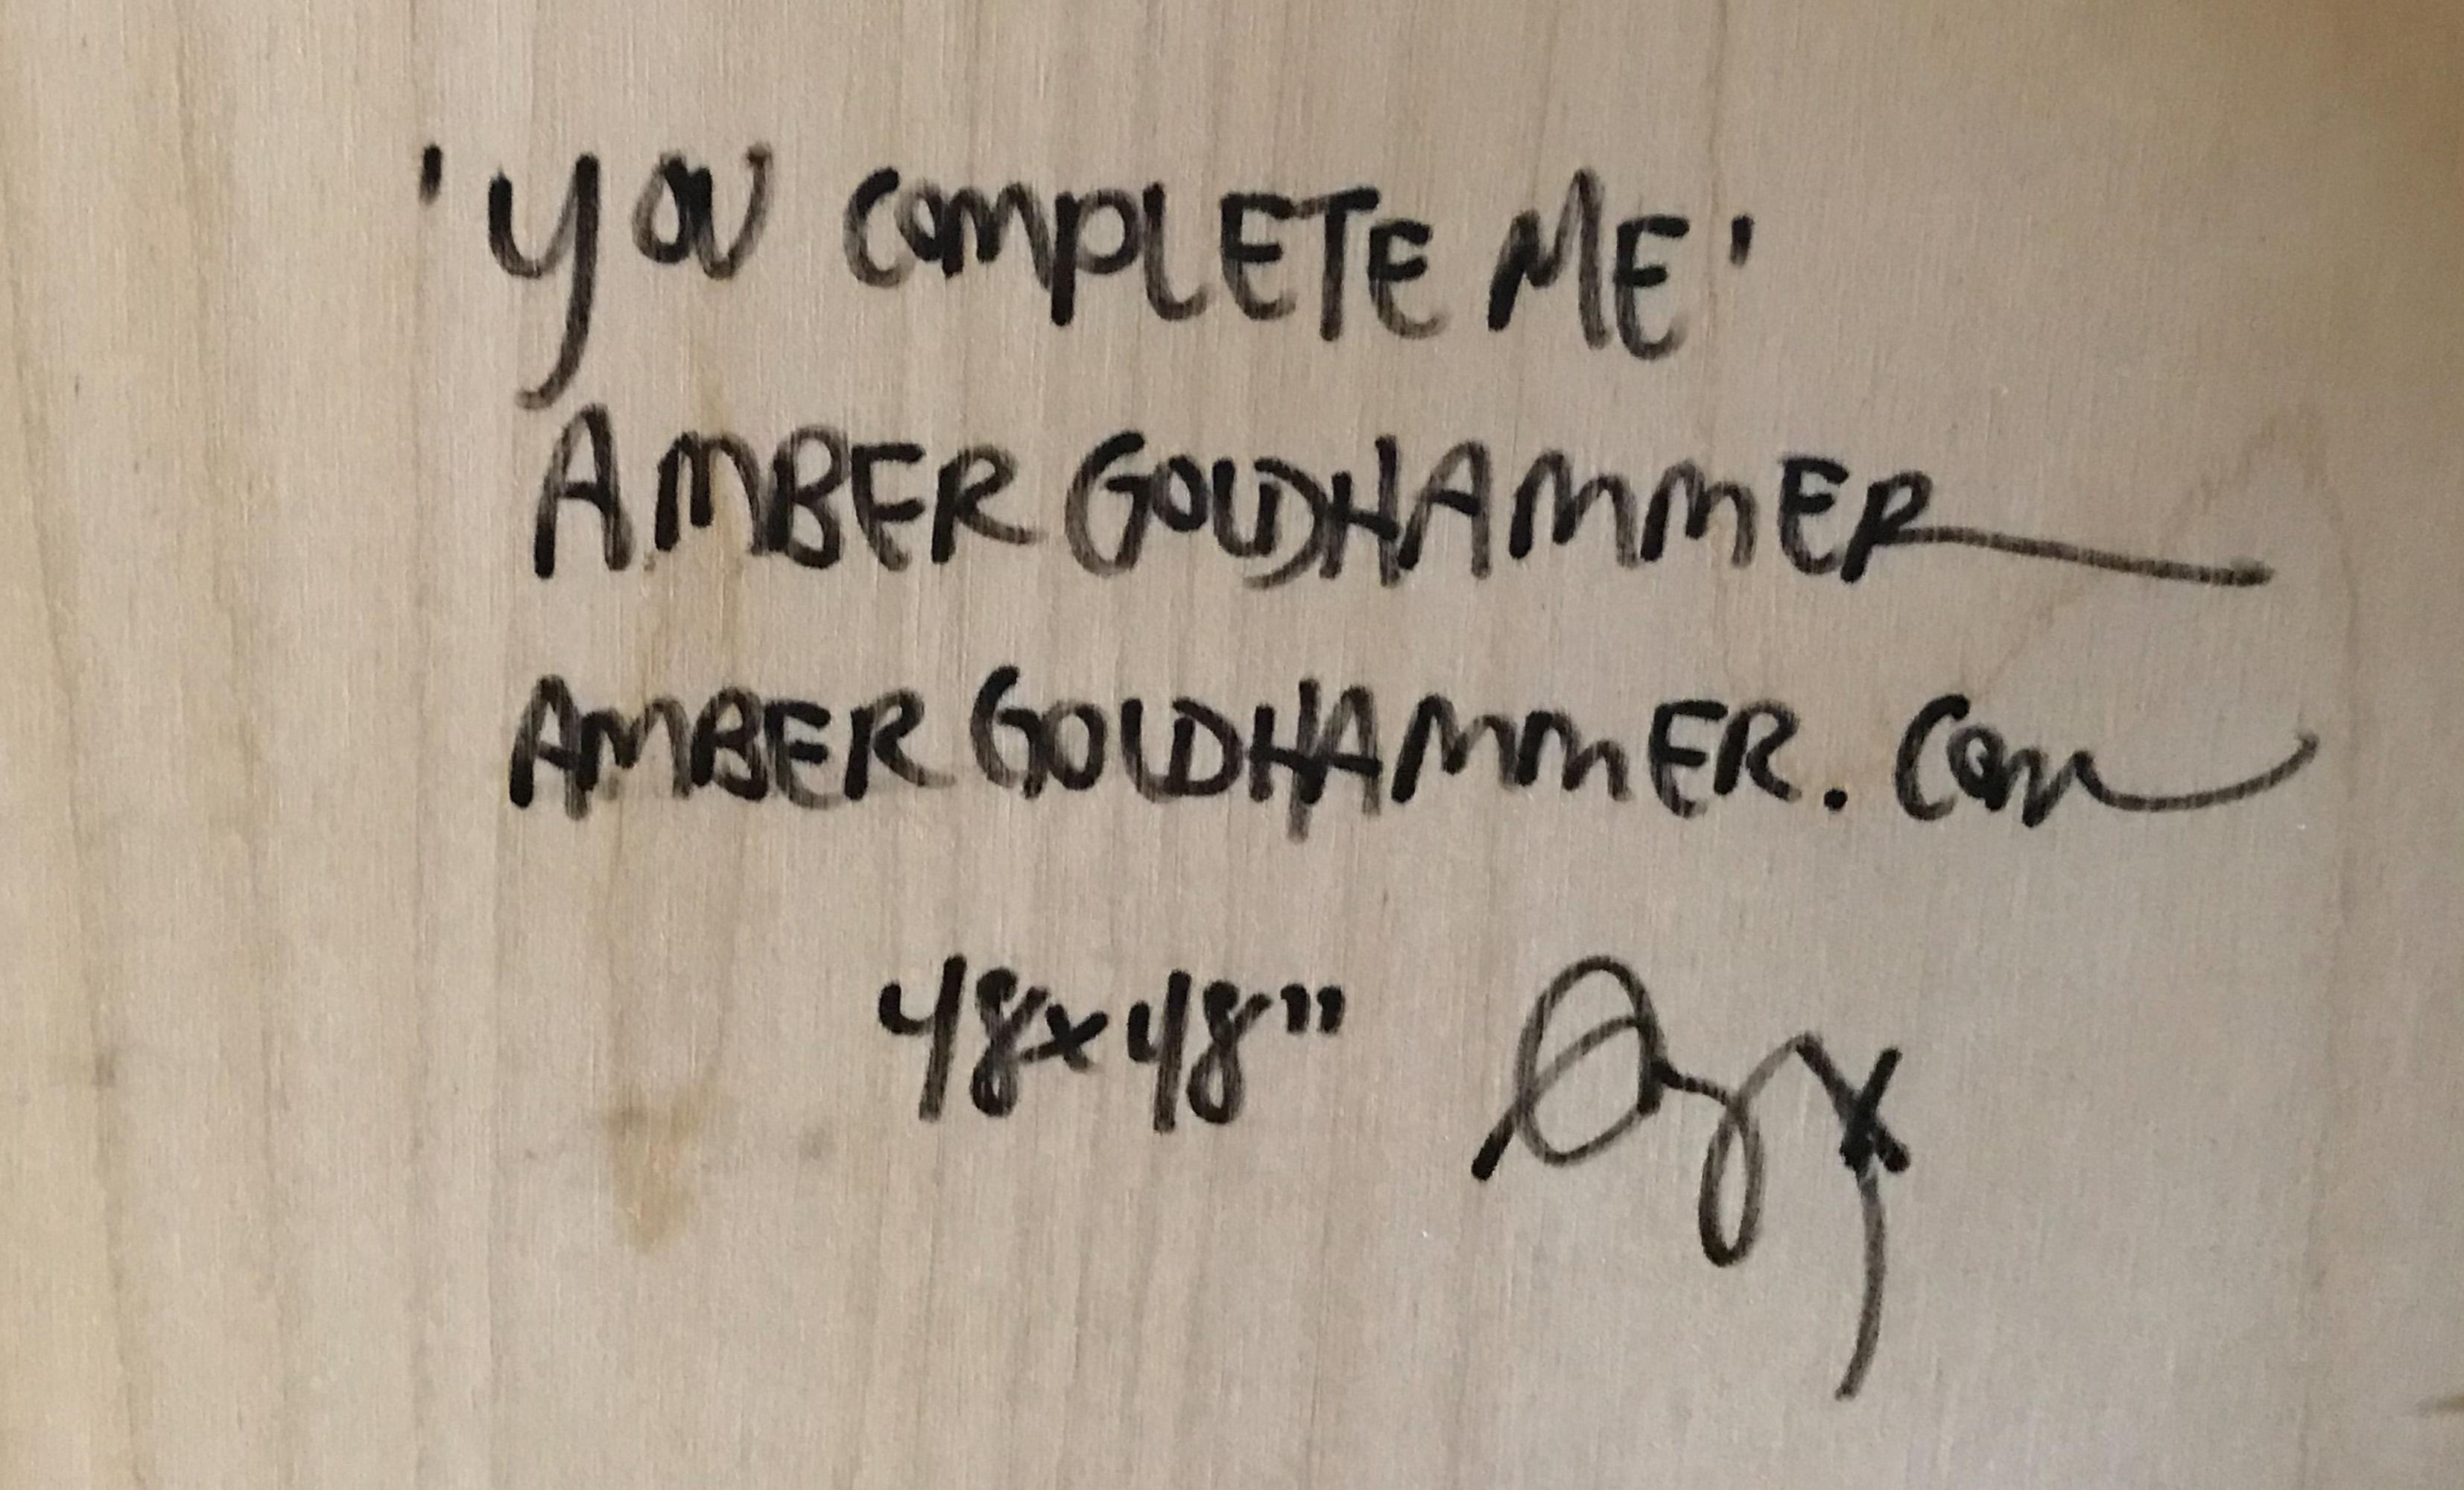 'YOU COMPLETE ME'
AMBER GOLDHAMMER
AMBERGOLDHAMMER.COM
48x48"